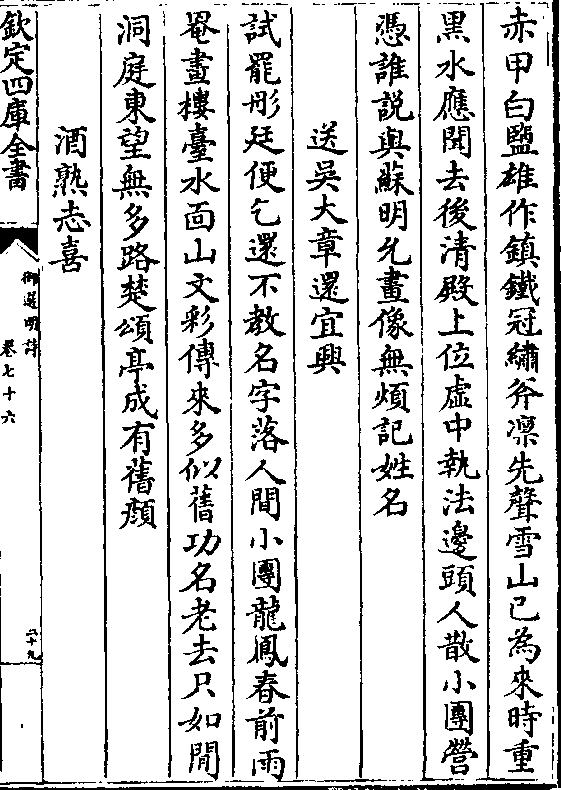 赤甲白鹽雄作鎮鐵冠繡斧凛先聲雪山已為來時重
黑水應聞去後清殿上位虛中執法邊頭人散小團營
憑誰説與蘇明允畫像無煩記姓名
送吳大章還宜興
試罷彤廷便乞還不教名字落人間小團龍鳳春前雨
罨畫樓臺水面山文彩傳來多似舊功名老去只如閒
洞庭東望無多路楚頌亭成有舊顔
酒熟志喜
欽定四庫全書
御選明詩
卷七十六
二十九